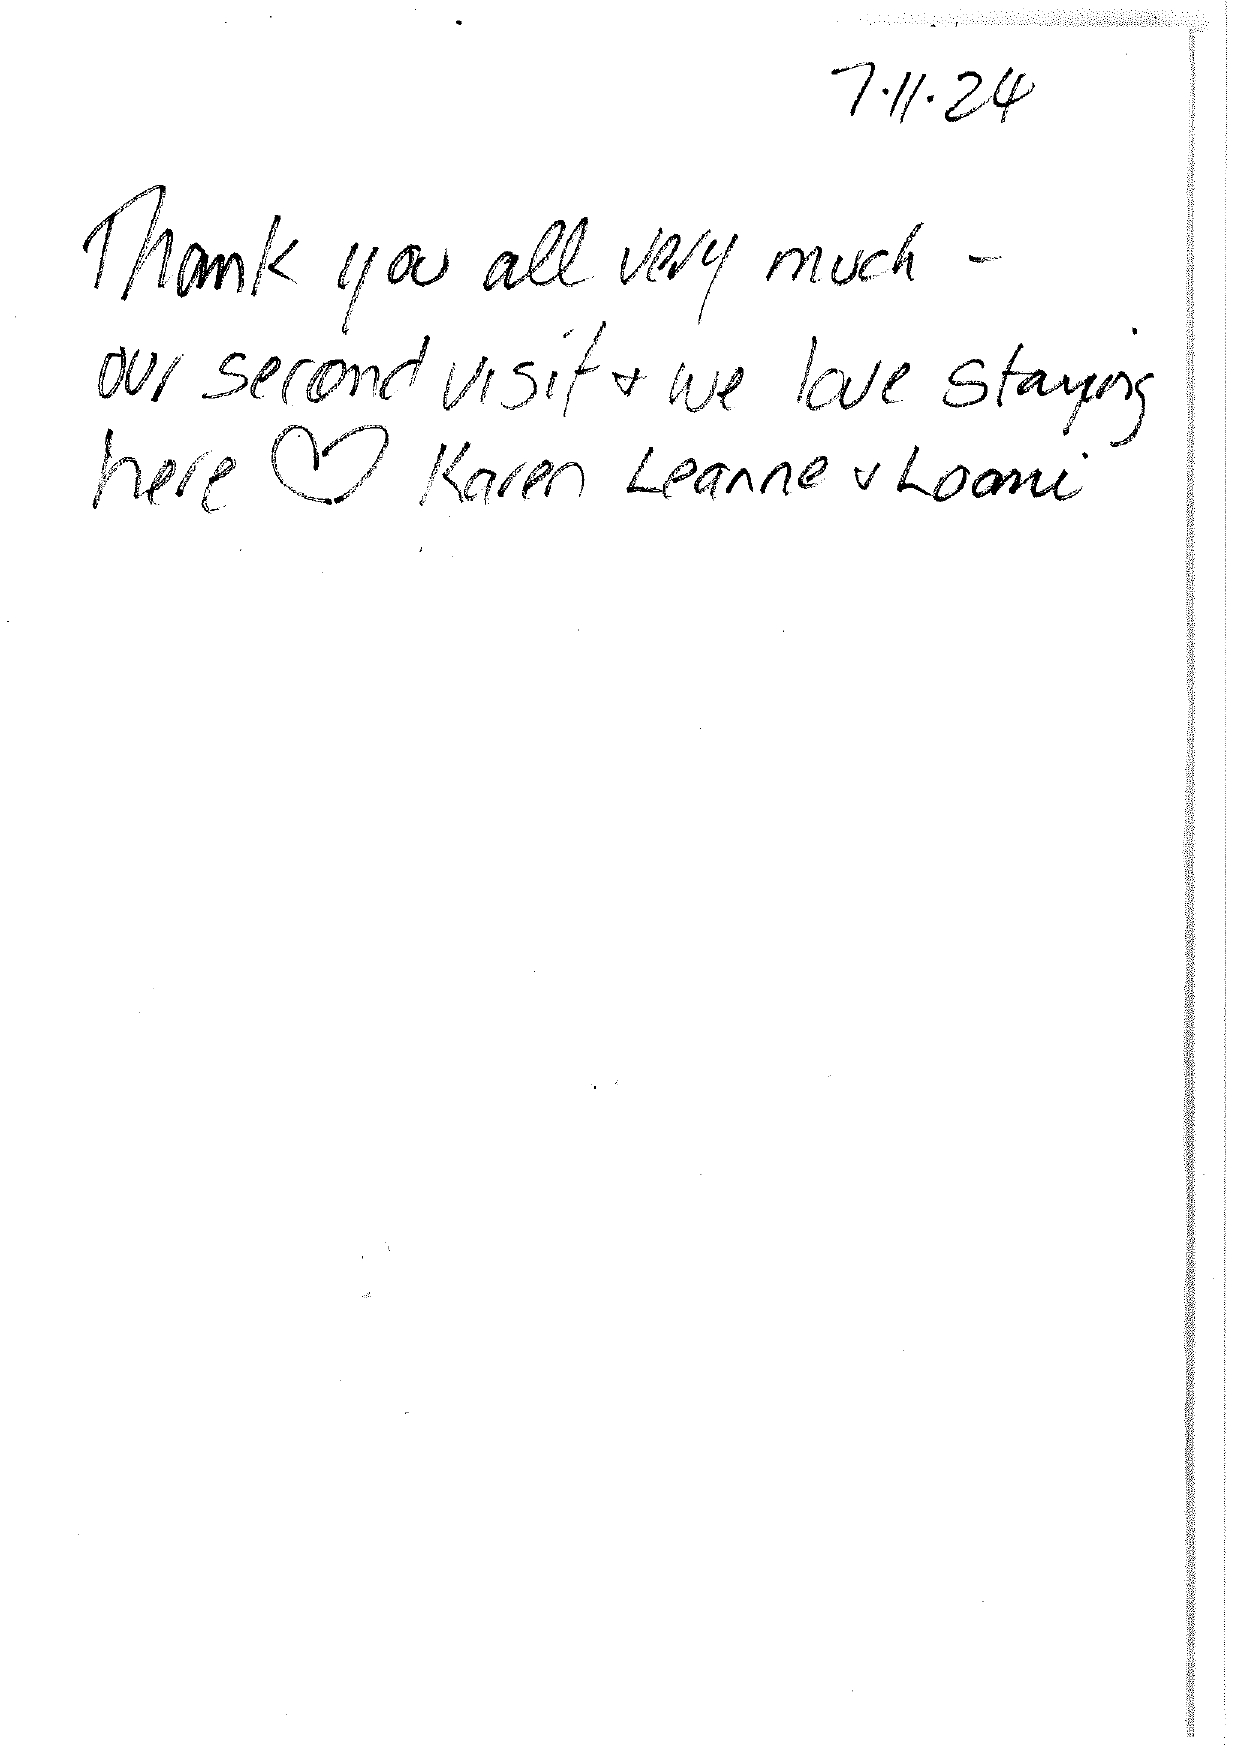 7.11.24
Thank you all very much -
our second visit + we love staying
here ♡ Karen Leanne + Loami